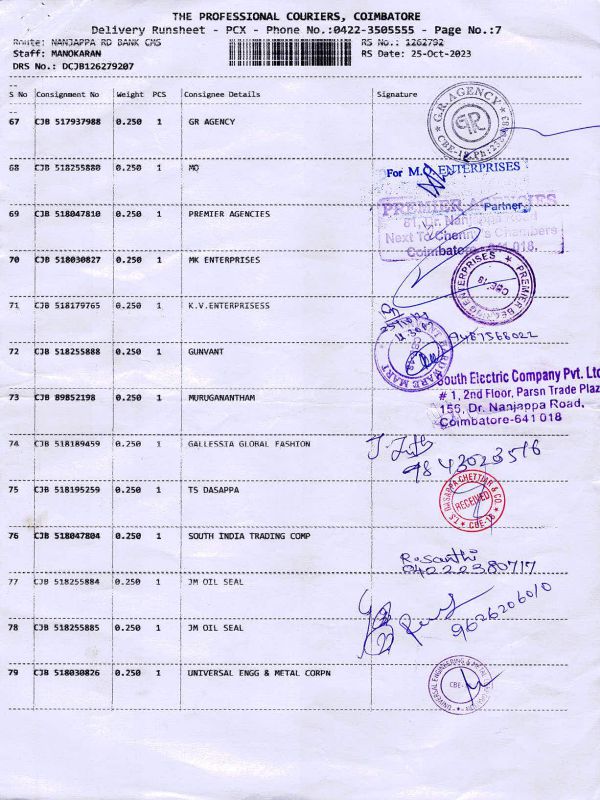 THE PROFESSIONAL COURIERS, COIMBATORE
Delivery Runsheet - PCX - Phone No.:0422-3505555 - Page No.:7
Route: NANJAPPA RD BANK CMS RS No.: 1262792
Staff: MANOKARAN RS Date: 25-Oct-2023
DRS No.: DCJB126279207
S No Consignment No Weight PCS Consignee Details Signature
67 CJB 517937988 0.250 1 GR AGENCY
G.R. AGENCY
GR
68 CJB 518255880 0.250 1 MQ
For M.Q ENTERPRISES
Partner
69 CJB 518047810 0.250 1 PREMIER AGENCIES
PREMIER AGENCIES
81, Dr. Nanjappa Road
Next To Chenny's Chambers
Coimbatore - 641 018.
70 CJB 518030827 0.250 1 MK ENTERPRISES
71 CJB 518179765 0.250 1 K.V.ENTERPRISESS
9487568022
72 CJB 518255888 0.250 1 GUNVANT
HARDWARE MART
73 CJB 89852198 0.250 1 MURUGANANTHAM
South Electric Company Pvt. Ltd
# 1, 2nd Floor, Parsn Trade Plaz
156, Dr. Nanjappa Road,
Coimbatore-641 018
74 CJB 518189459 0.250 1 GALLESSIA GLOBAL FASHION
9843023516
75 CJB 518195259 0.250 1 TS DASAPPA
T.S. DASAPPA CHETTIAR & CO.
RECEIVED
CBE-18
76 CJB 518047804 0.250 1 SOUTH INDIA TRADING COMP
R.Santhi
04222380717
77 CJB 518255884 0.250 1 JM OIL SEAL
78 CJB 518255885 0.250 1 JM OIL SEAL
9626206010
79 CJB 518030826 0.250 1 UNIVERSAL ENGG & METAL CORPN
UNIVERSAL ENGINEERING & METAL
CBE